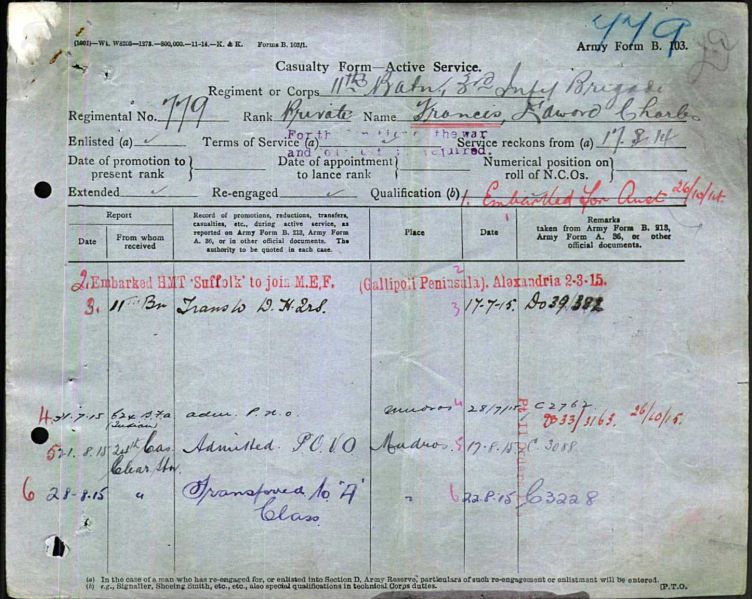 779
(1001)—Wt. W8205—1278.—800,000.—11-14.—K. & K. Forms B. 103/1.
Army Form B. 103.
Casualty Form—Active Service.
Regiment or Corps 11th Batn, 3rd Infy Brigade
Regimental No. 779 Rank Private Name Francis, Edward Charles
Enlisted (a) ✓ Terms of Service (a) the war Service reckons from (a) 17.8.14
Date of promotion to present rank
Date of appointment to lance rank
Numerical position on roll of N.C.Os.
Extended ✓ Re-engaged ✓ Qualification (b)
1. Embarked for Aust 26/10/14.
Report
Date
From whom received
Record of promotions, reductions, transfers, casualties, etc., during active service, as reported on Army Form B. 213, Army Form A. 36, or in other official documents. The authority to be quoted in each case.
Place
Date
Remarks
taken from Army Form B. 213, Army Form A. 36, or other official documents.
2. Embarked HMT 'Suffolk' to join M.E.F. (Gallipoli Peninsula). Alexandria 2-3-15.
3. 11th Bn Trans to D.H.Qrs. 3 17-7-15. Do 39
4 7.15 (Indian) adm. Mudros 4 28/7/15 C 2762
33/3163. 26/10/15.
5 21.8.15 Cas. Clear Stn Admitted Mudros 5 17-8.15 C. 3088
6 28-8-15 " Transferred to "A" Class. " 6 22.8.15 C3228
(a) In the case of a man who has re-engaged for, or enlisted into Section D, Army Reserve, particulars of such re-engagement or enlistment will be entered.
(b) e.g., Signaller, Shoeing Smith, etc., etc., also special qualifications in technical Corps duties.
[P.T.O.